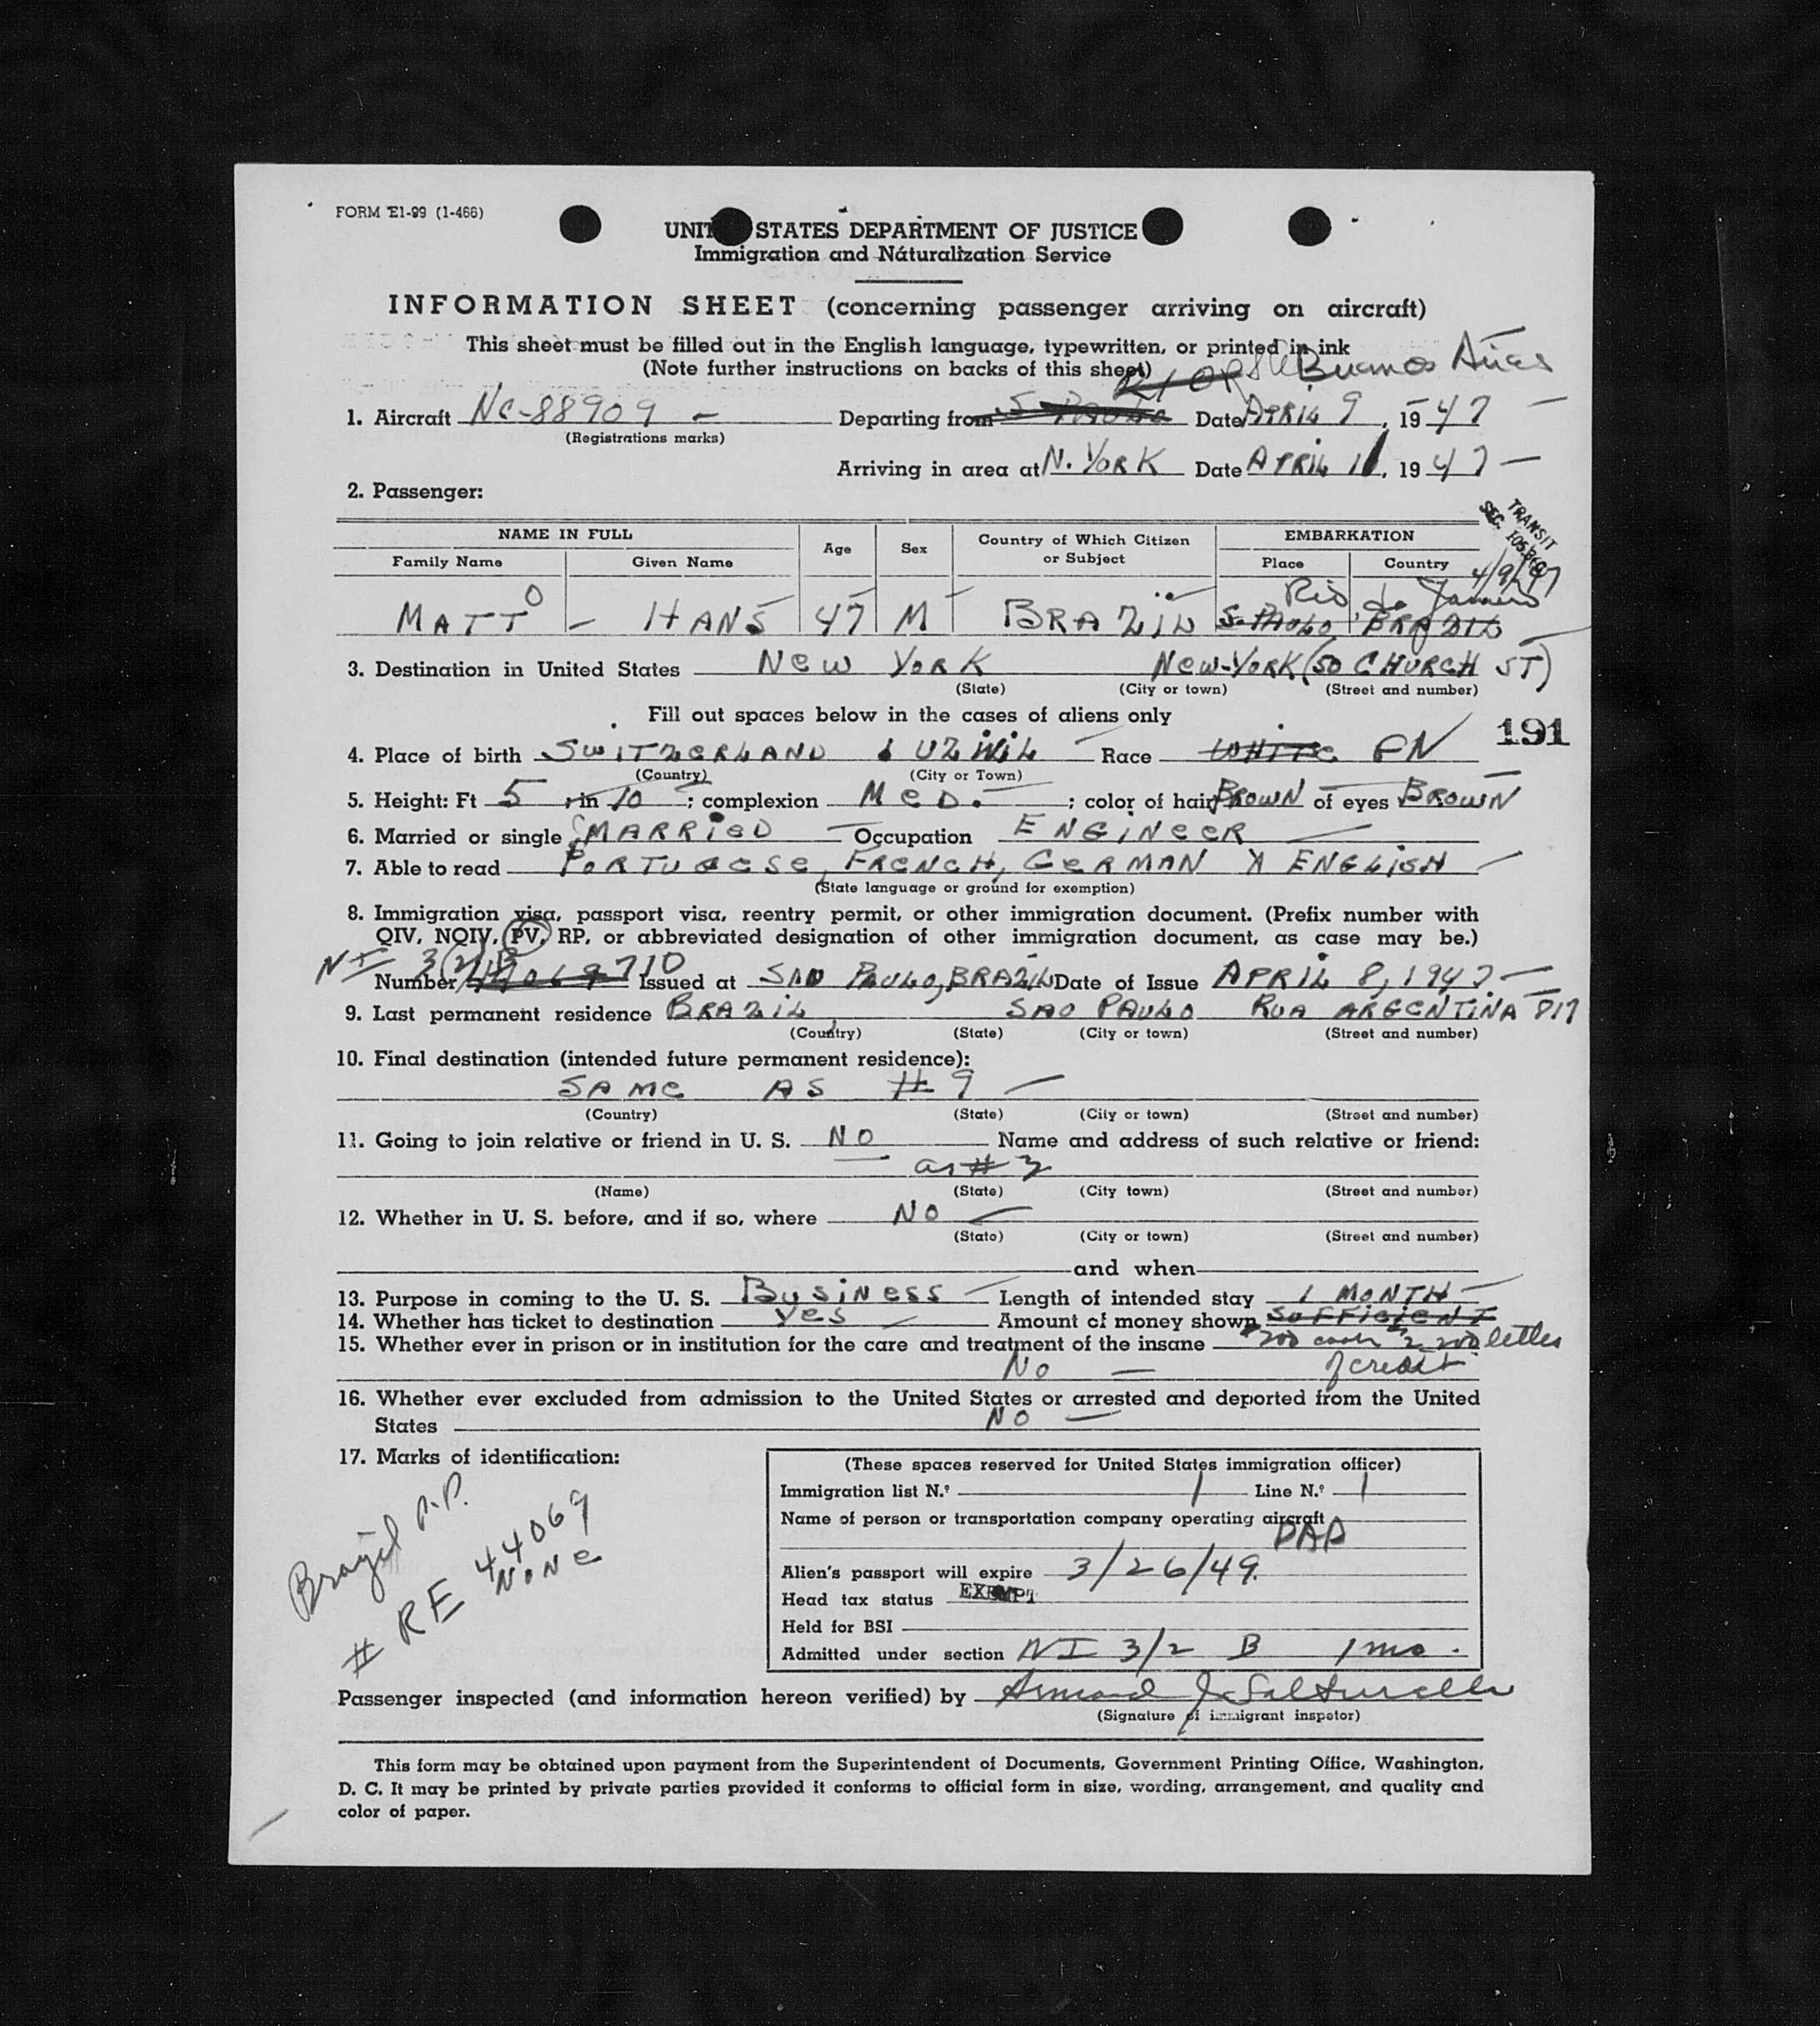 FORM E1-99 (1-466)
UNITED STATES DEPARTMENT OF JUSTICE
Immigration and Naturalization Service
INFORMATION SHEET (concerning passenger arriving on aircraft)
This sheet must be filled out in the English language, typewritten, or printed in ink
(Note further instructions on backs of this sheet)
Buenos Aires
1. Aircraft NC-88909 — Departing from S. PAULO Date APRIL 9, 1947 —
(Registrations marks)
Arriving in area at N. YORK Date APRIL 11, 1947 —
2. Passenger:
TRANSIT
SEC.
NAME IN FULL Age Sex Country of Which Citizen or Subject EMBARKATION
Family Name Given Name Place Country
4/9/47
Rio de Janeiro
MATT O — HANS 47 M BRAZIL S. PAULO BRAZIL
3. Destination in United States NEW YORK NEW-YORK (50 CHURCH ST)
(State) (City or town) (Street and number)
Fill out spaces below in the cases of aliens only
191
4. Place of birth SWITZERLAND UZWIL Race WHITE
(Country) (City or Town)
5. Height: Ft 5, in 10; complexion MED.; color of hair BROWN of eyes BROWN
6. Married or single MARRIED — Occupation ENGINEER
7. Able to read PORTUGESE, FRENCH, GERMAN & ENGLISH
(State language or ground for exemption)
8. Immigration visa, passport visa, reentry permit, or other immigration document. (Prefix number with
QIV, NQIV, PV, RP, or abbreviated designation of other immigration document, as case may be.)
NI 3(2) B
Number 710 Issued at SAO PAULO, BRAZIL Date of Issue APRIL 8, 1947 —
9. Last permanent residence BRAZIL SAO PAULO RUA ARGENTINA 817
(Country) (State) (City or town) (Street and number)
10. Final destination (intended future permanent residence):
SAME AS #9 —
(Country) (State) (City or town) (Street and number)
11. Going to join relative or friend in U. S. NO Name and address of such relative or friend:
as #3
(Name) (State) (City town) (Street and number)
12. Whether in U. S. before, and if so, where NO —
(State) (City or town) (Street and number)
and when
13. Purpose in coming to the U. S. BUSINESS Length of intended stay 1 MONTH —
14. Whether has ticket to destination YES Amount of money shown SUFFICIENT
15. Whether ever in prison or in institution for the care and treatment of the insane $200 cash letter
NO — of credit
16. Whether ever excluded from admission to the United States or arrested and deported from the United
States NO —
17. Marks of identification:
Brazil P.P.
# RE 44069
NONE
(These spaces reserved for United States immigration officer)
Immigration list N.º 1 Line N.º 1
Name of person or transportation company operating aircraft
PAA
Alien's passport will expire 3/26/49.
Head tax status EXEMPT
Held for BSI
Admitted under section NI 3/2 B 1 mo.
Passenger inspected (and information hereon verified) by Armand J.
(Signature of immigrant inspetor)
This form may be obtained upon payment from the Superintendent of Documents, Government Printing Office, Washington,
D. C. It may be printed by private parties provided it conforms to official form in size, wording, arrangement, and quality and
color of paper.